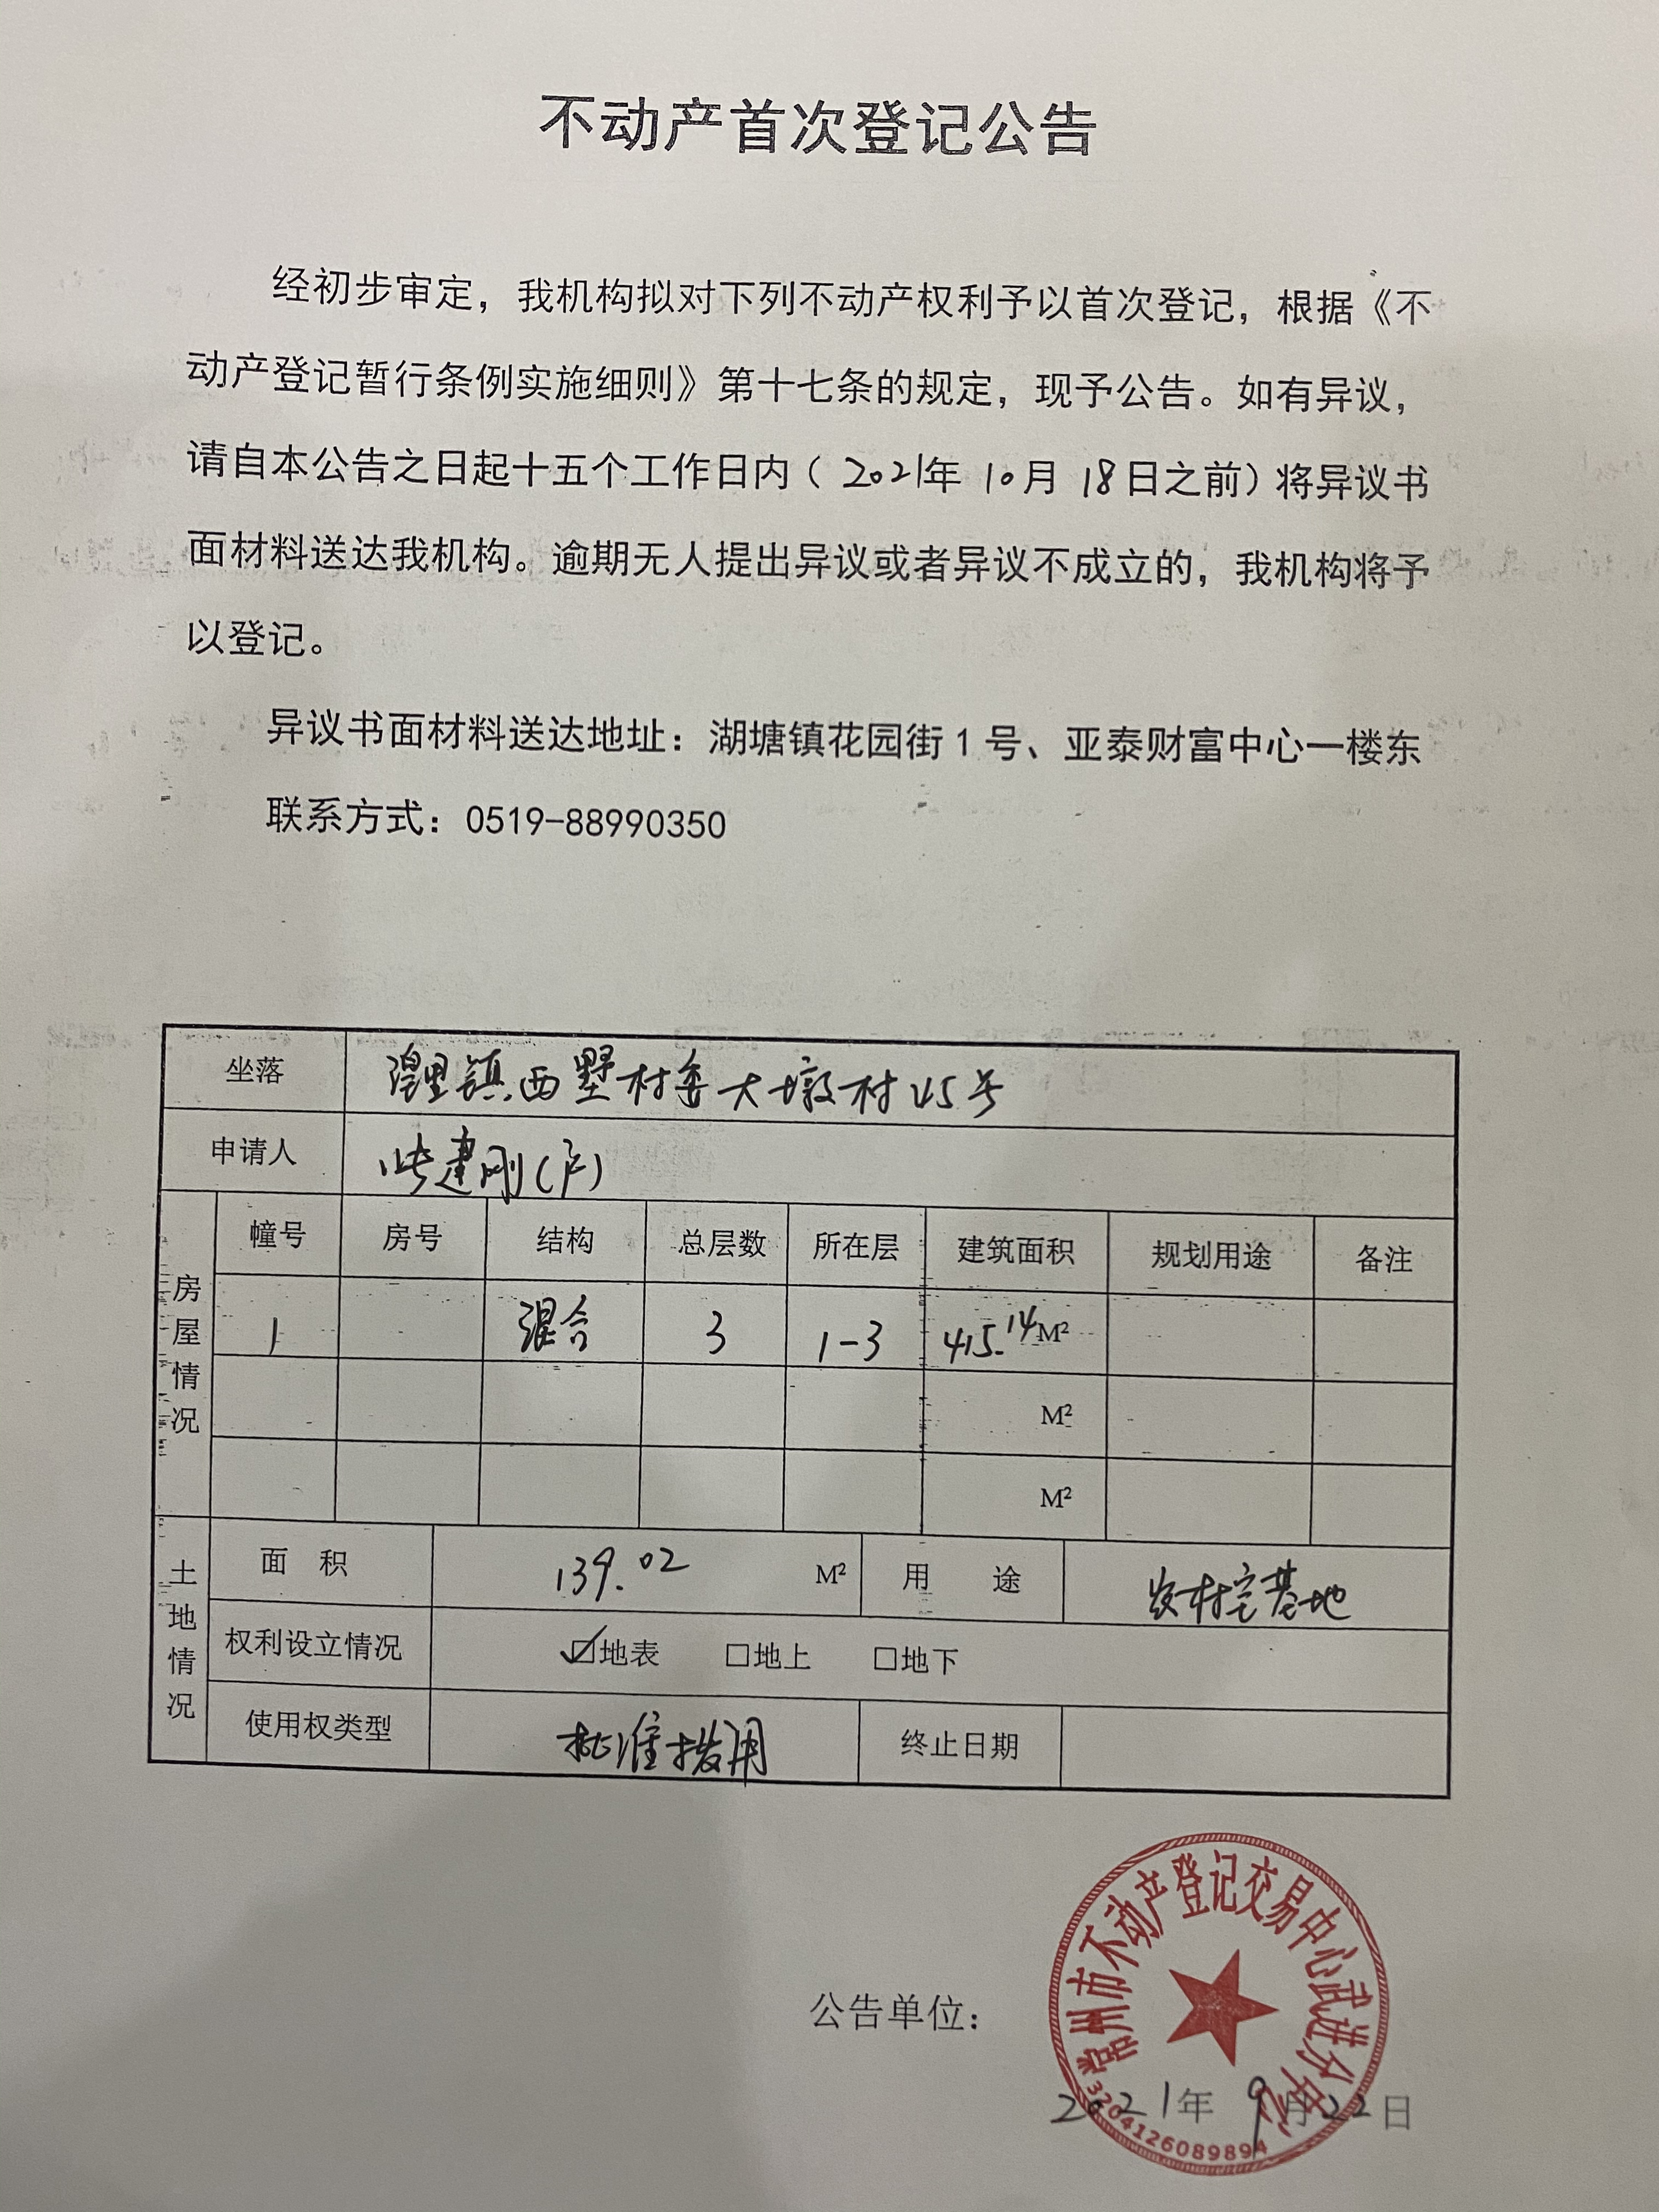 不动产首次登记公告
经初步审定，我机构拟对下列不动产权利予以首次登记，根据《不
动产登记暂行条例实施细则》第十七条的规定，现予公告。如有异议，
请自本公告之日起十五个工作日内（2021年 10月 18日之前）将异议书
面材料送达我机构。逾期无人提出异议或者异议不成立的，我机构将予
以登记。
异议书面材料送达地址：湖塘镇花园街1号、亚泰财富中心一楼东
联系方式：0519-88990350
坐落 湟里镇西墅村委大墩村45号
申请人 张建刚(户)
房屋情况
幢号 房号 结构 总层数 所在层 建筑面积 规划用途 备注
1 混合 3 1-3 415.14M²
M²
M²
土地情况
面 积 139.02 M² 用 途 农村宅基地
权利设立情况 ☑地表 □地上 □地下
使用权类型 批准拨用 终止日期
公告单位：
常州市不动产登记交易中心武进分中心
2021年 9月22日